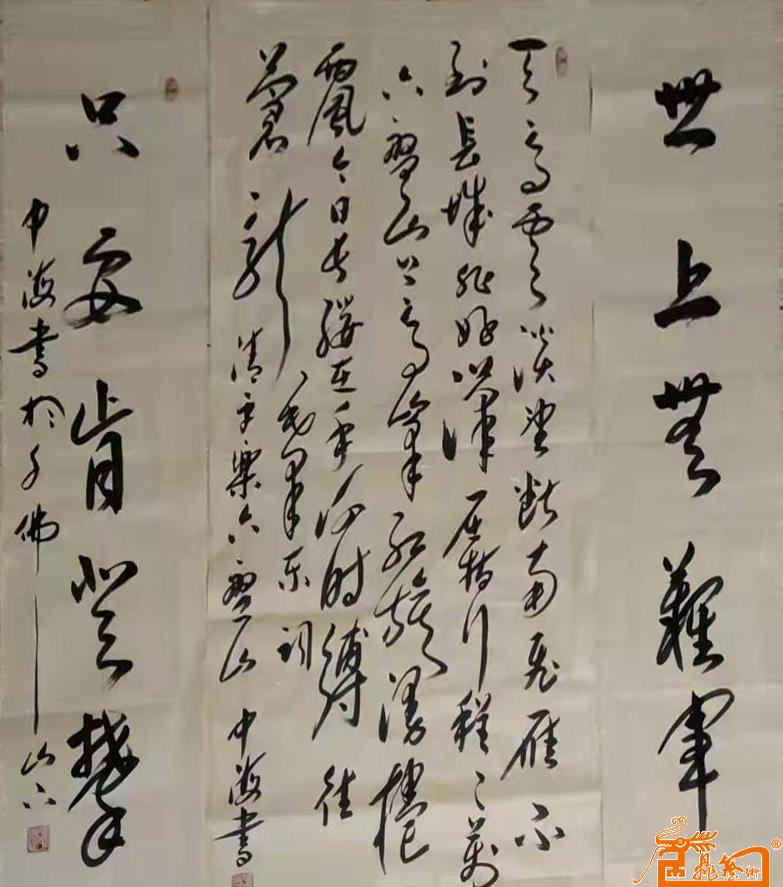 世上無難事
天高雲淡望斷南飛雁不
到長城非好漢屈指行程二萬
六盤山上高峰紅旗漫捲
西風今日長纓在手何时縛住
蒼龍
毛澤東詞
清平樂六盤山 中海書
只要肯登攀
中海書於千佛山下